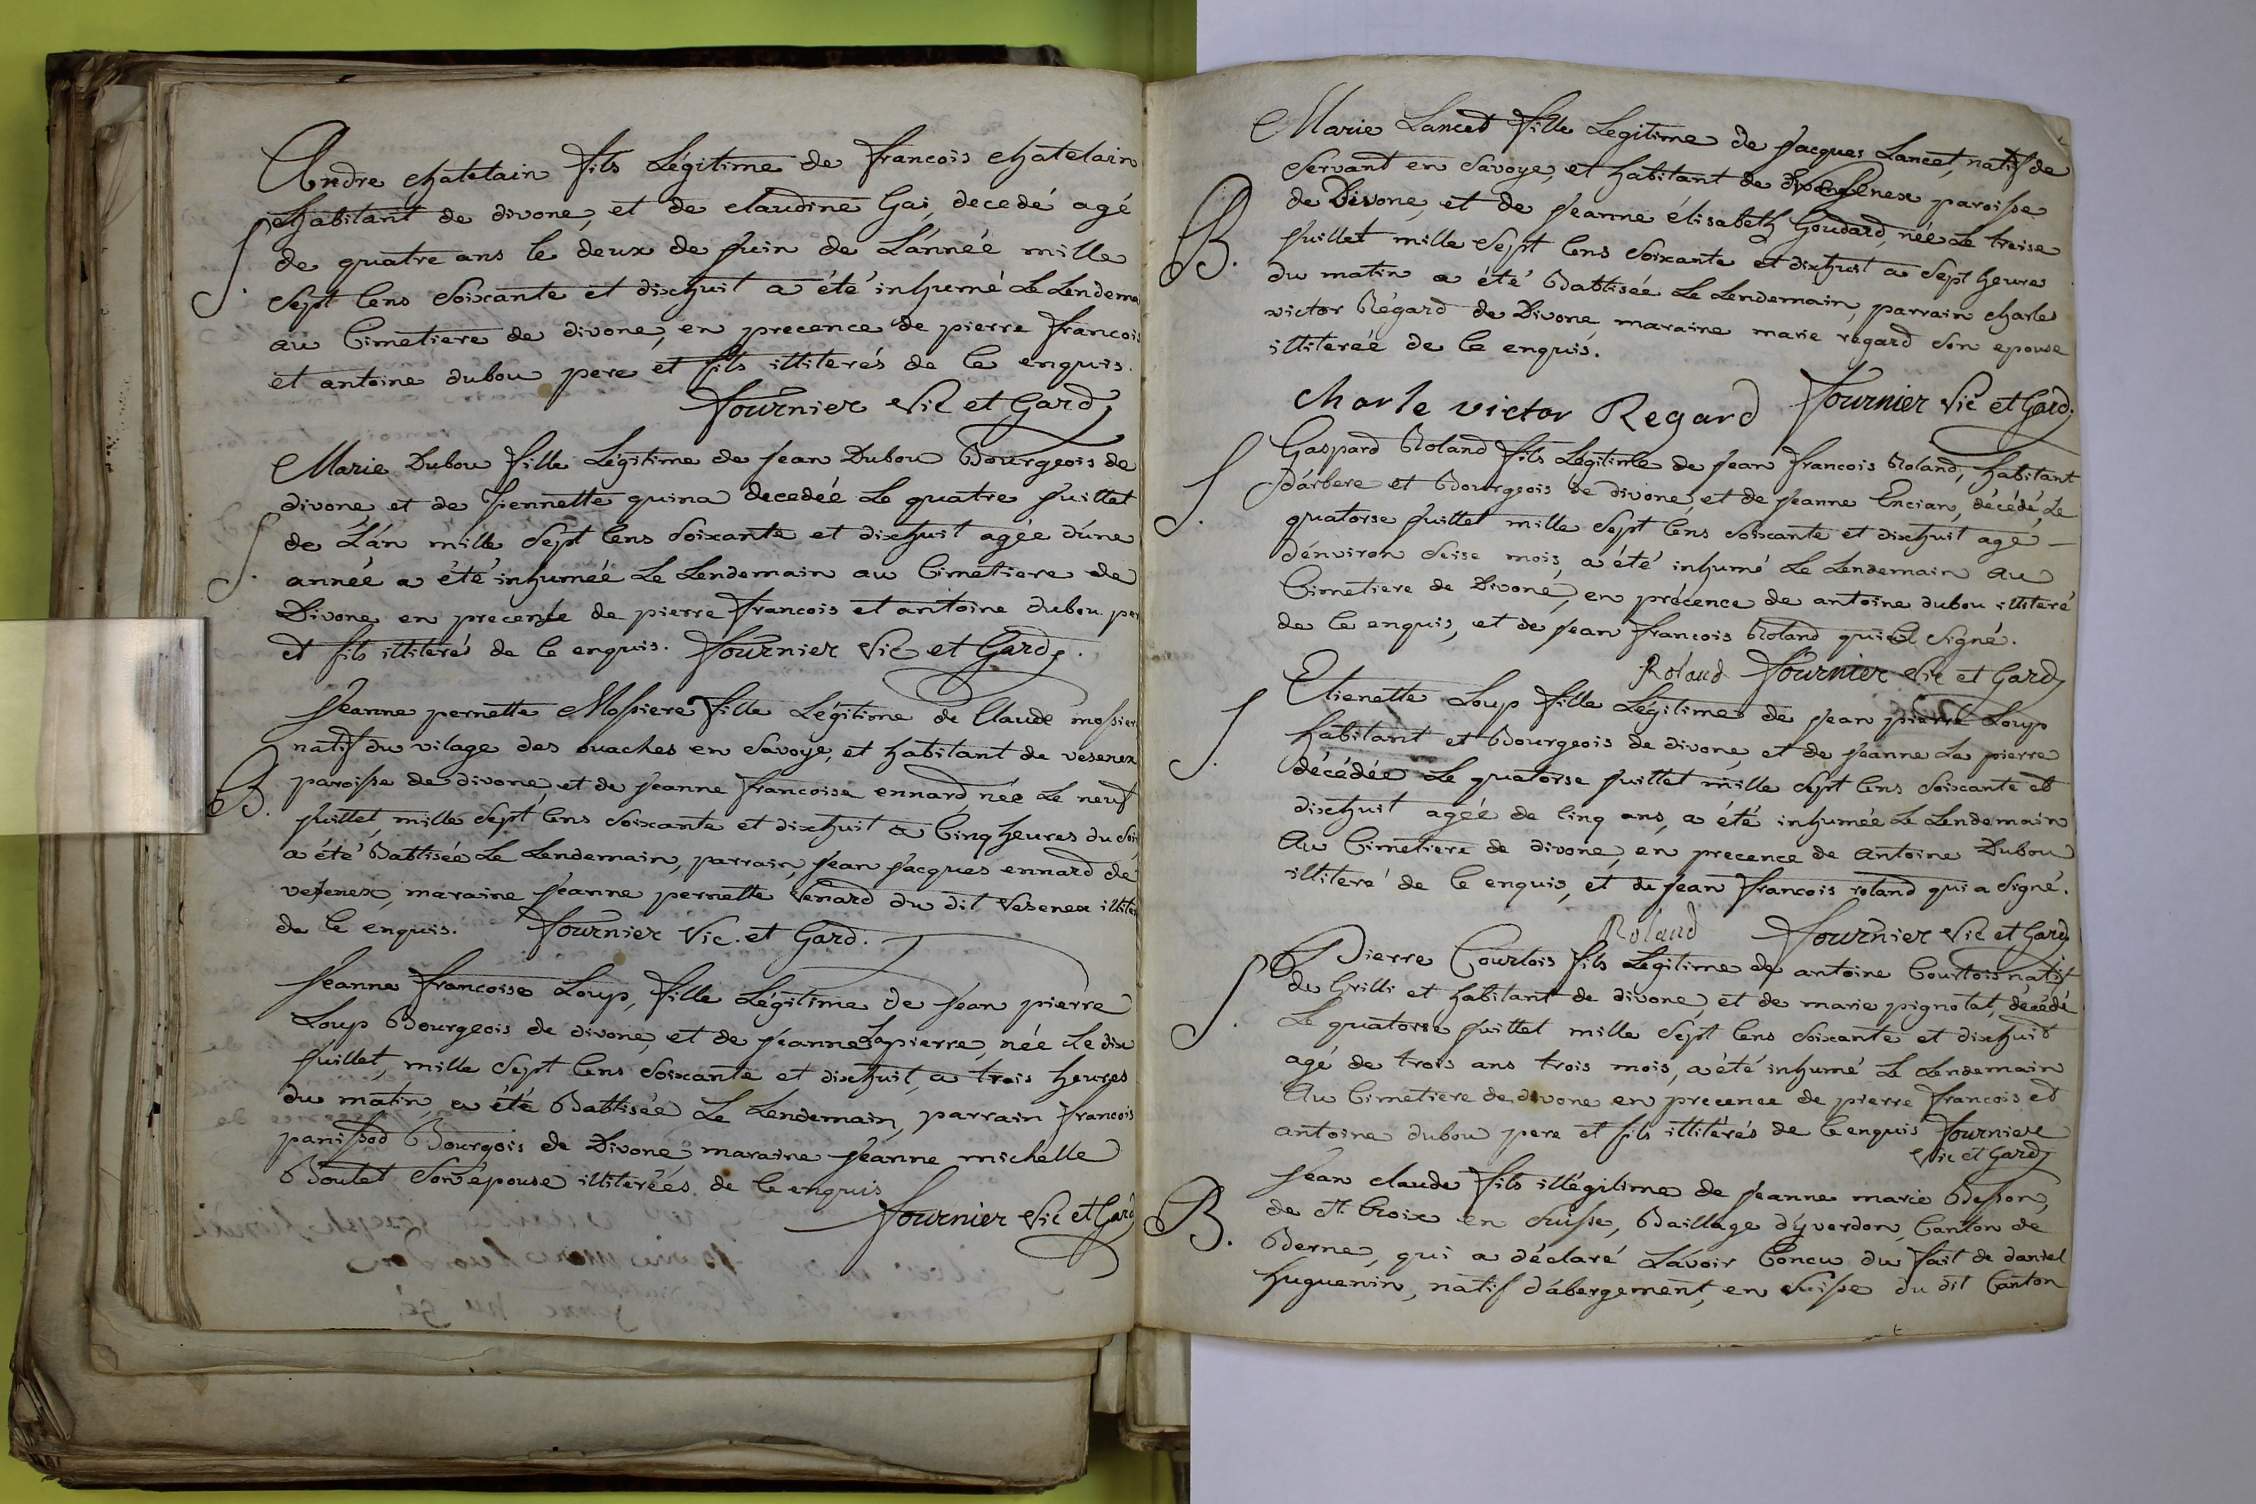 Andre chatelain fils Légitime de francois chatelain
habitant de divone, et de claudine Gai, decedé agé
S.
de quatre ans le deux de juin de L'année mille
sept Cens soixante et dixhuit a été inhumé Le Lendemai
au Cimetiere de divone, en precence de pierre francois
et antoine dubou pere et fils illiterés de ce enquis.
fournier Vic et Gard
Marie Dubou fille Légitime de jean Dubou Bourgeois de
divone, et de Tiennette quina decedéé Le quatre juillet
S.
de L'an mille sept Cens soixante et dixhuit agée d'une
année a été inhuméé Le Lendemain au Cimetiere de
Divone en precence de pierre francois et antoine dubou per
et fils illiterés de ce enquis. fournier Vic et Gard.
jeanne pernette Mossiere fille Légitime de Claude mossier
natif du vilage des ouaches en savoye, et habitant de vesenex
B.
paroisse de divone, et de jeanne francoise ennard, née Le neuf
juillet, mille sept Cens soixante et dixhuit a Cinq heures du soi
a été Batisée Le Lendemain, parrain, jean jacques ennard de
vesenex, maraine jeanne pernette Venard du dit Vesenex illiter
de ce enquis. fournier Vic. et Gard.
jeanne francoise Loup, fille Légitime de jean pierre
Loup Bourgeois de divone, et de jeanne Lapierre, née Le dix
juillet, mille sept Cens soixante et dixhuit, a trois heures
du matin, a été Batisée Le Lendemain, parrain francois
panissod Bourgois de Divone maraine jeanne michelle
Boulet son épouse illiteréés de ce enquis
fournier Vic et Gard
Marie Lancet fille Legitime de jacques Lancet, natif de
servant en savoye, et habitant de vesenex paroisse
B.
de Divone, et de jeanne élisabeth Goudard, née Le treise
juillet mille sept Cens soixante et dixhuit a sept heures
du matin a été Batisée Le Lendemain, parrain charles
victor Régard de Divone maraine marie regard son epouse
illiteréé de ce enquis.
charle victor Regard fournier Vic et Gard.
S.
Gaspard Roland fils Légitime de jean francois Roland, habitant
d'arbere et Bourgeois de divone, et de jeanne Encian, décédé, Le
quatorse juillet mille sept Cens soixante et dixhuit agé
d'environ seise mois, a été inhumé Le Lendemain au
Cimetiere de Divone, en précence de antoine dubou illiteré
de ce enquis, et de jean francois Roland qui a signé.
Roland fournier Vic et Gard
S.
Etienette Loup fille Légitime de jean pierre Loup
habitant et Bourgeois de divone, et de jeanne La pierre
décédéé Le quatorse juillet mille sept Cens soixante et
dixhuit agéé de cinq ans, a été inhumée Le Lendemain
Au Cimetiere de divone, en precence de Antoine Dubou
illiteré de ce enquis, et de jean francois roland qui a signé.
Roland fournier Vic et Gard
S.
Pierre Courtois fils Légitime de antoine Courtois natif
de Crilli et habitant de divone, et de marie pignolat, décédé
Le quatorse juillet mille sept Cens soixante et dixhuit
agé de trois ans trois mois, a été inhumé Le Lendemain
Au Cimetiere de divone en precence de pierre francois et
antoine dubou pere et fils illitérés de ce enquis fourniere
Vic et Gard
B.
jean claude fils illégitime de jeanne marie Besson,
de St Croix en suisse, Baillage d'yverdon, Canton de
Berne, qui a déclaré L'avoir Concu du fait de daniel
huguenin, natif d'abergement, en suisse du dit Canton